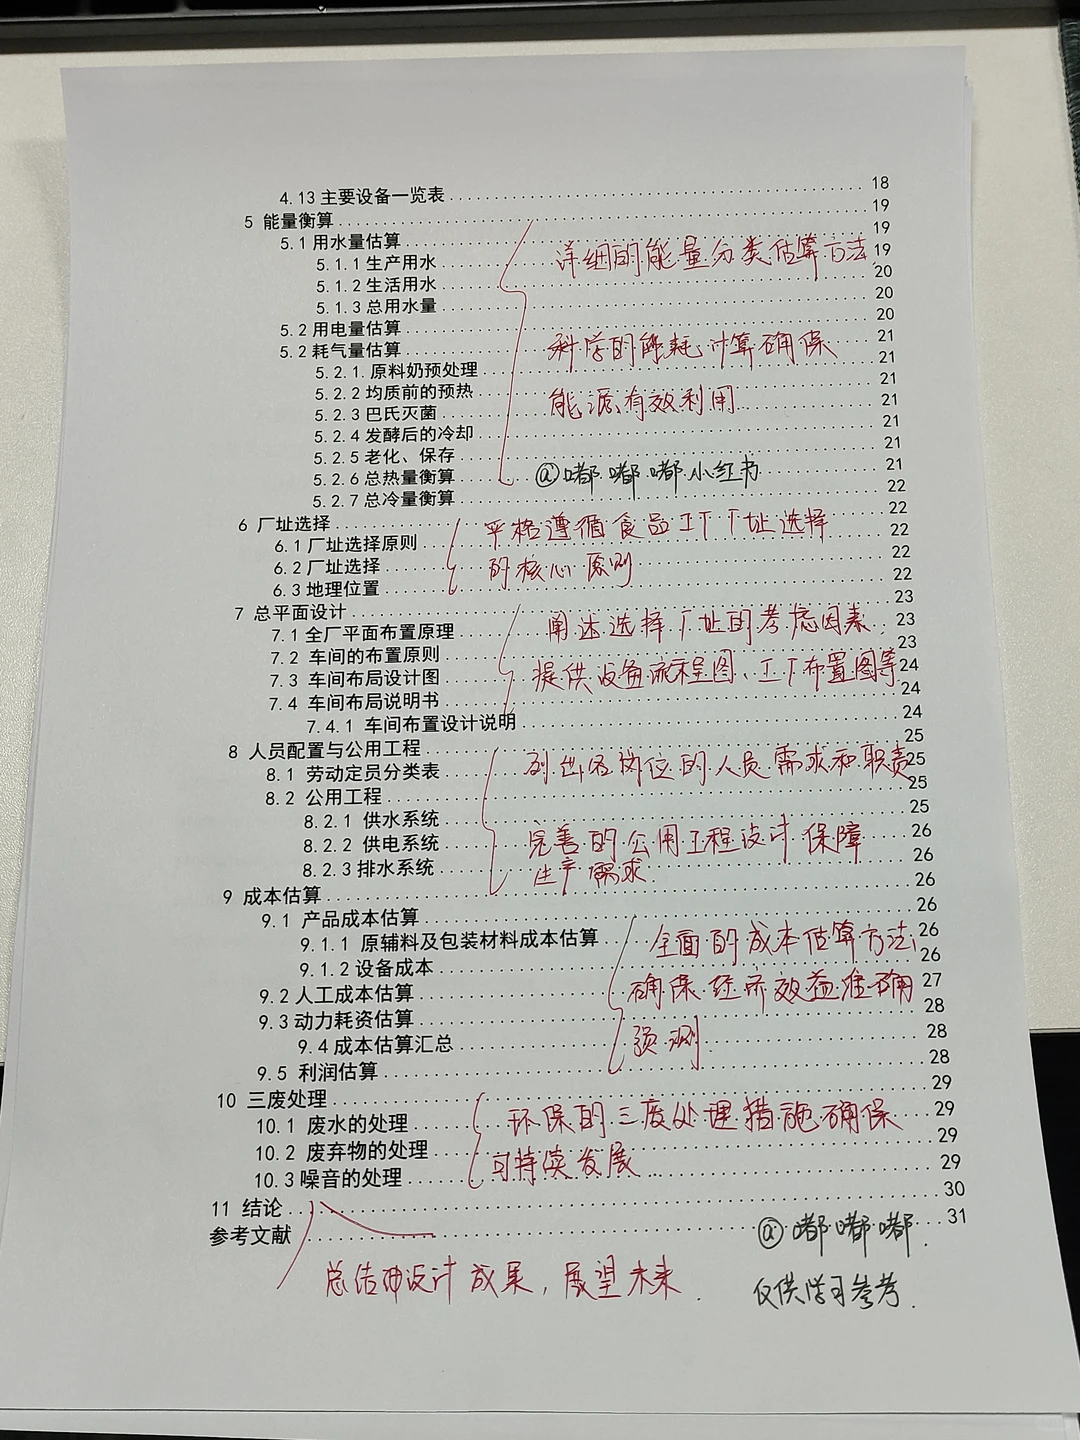 4.13 主要设备一览表 18
5 能量衡算 19
5.1 用水量估算 19
5.1.1 生产用水 19
5.1.2 生活用水 20
5.1.3 总用水量 20
5.2 用电量估算 20
5.2 耗气量估算 21
5.2.1. 原料奶预处理 21
5.2.2 均质前的预热 21
5.2.3 巴氏灭菌 21
5.2.4 发酵后的冷却 21
5.2.5 老化、保存 21
5.2.6 总热量衡算 21
5.2.7 总冷量衡算 22
详细的能量分类估算方法
科学的能耗计算确保
能源有效利用
@嘟嘟嘟小红书
6 厂址选择 22
6.1 厂址选择原则 22
6.2 厂址选择 22
6.3 地理位置 22
严格遵循食品工厂厂址选择
的核心原则
7 总平面设计 23
7.1 全厂平面布置原理 23
7.2 车间的布置原则 23
7.3 车间布局设计图 24
7.4 车间布局说明书 24
7.4.1 车间布置设计说明 24
阐述选择厂址的考虑因素,
提供设备流程图、工厂布置图等
8 人员配置与公用工程 25
8.1 劳动定员分类表 25
8.2 公用工程 25
8.2.1 供水系统 25
8.2.2 供电系统 26
8.2.3 排水系统 26
列出各岗位的人员需求和职责
完善的公用工程设计保障
生产需求
9 成本估算 26
9.1 产品成本估算 26
9.1.1 原辅料及包装材料成本估算 26
9.1.2 设备成本 26
9.2 人工成本估算 27
9.3 动力耗资估算 28
9.4 成本估算汇总 28
9.5 利润估算 28
全面的成本估算方法
确保经济效益准确
预测
10 三废处理 29
10.1 废水的处理 29
10.2 废弃物的处理 29
10.3 噪音的处理 29
环保的三废处理措施确保
可持续发展
11 结论 30
参考文献 31
@嘟嘟嘟.
总结设计成果,展望未来.
仅供学习参考.